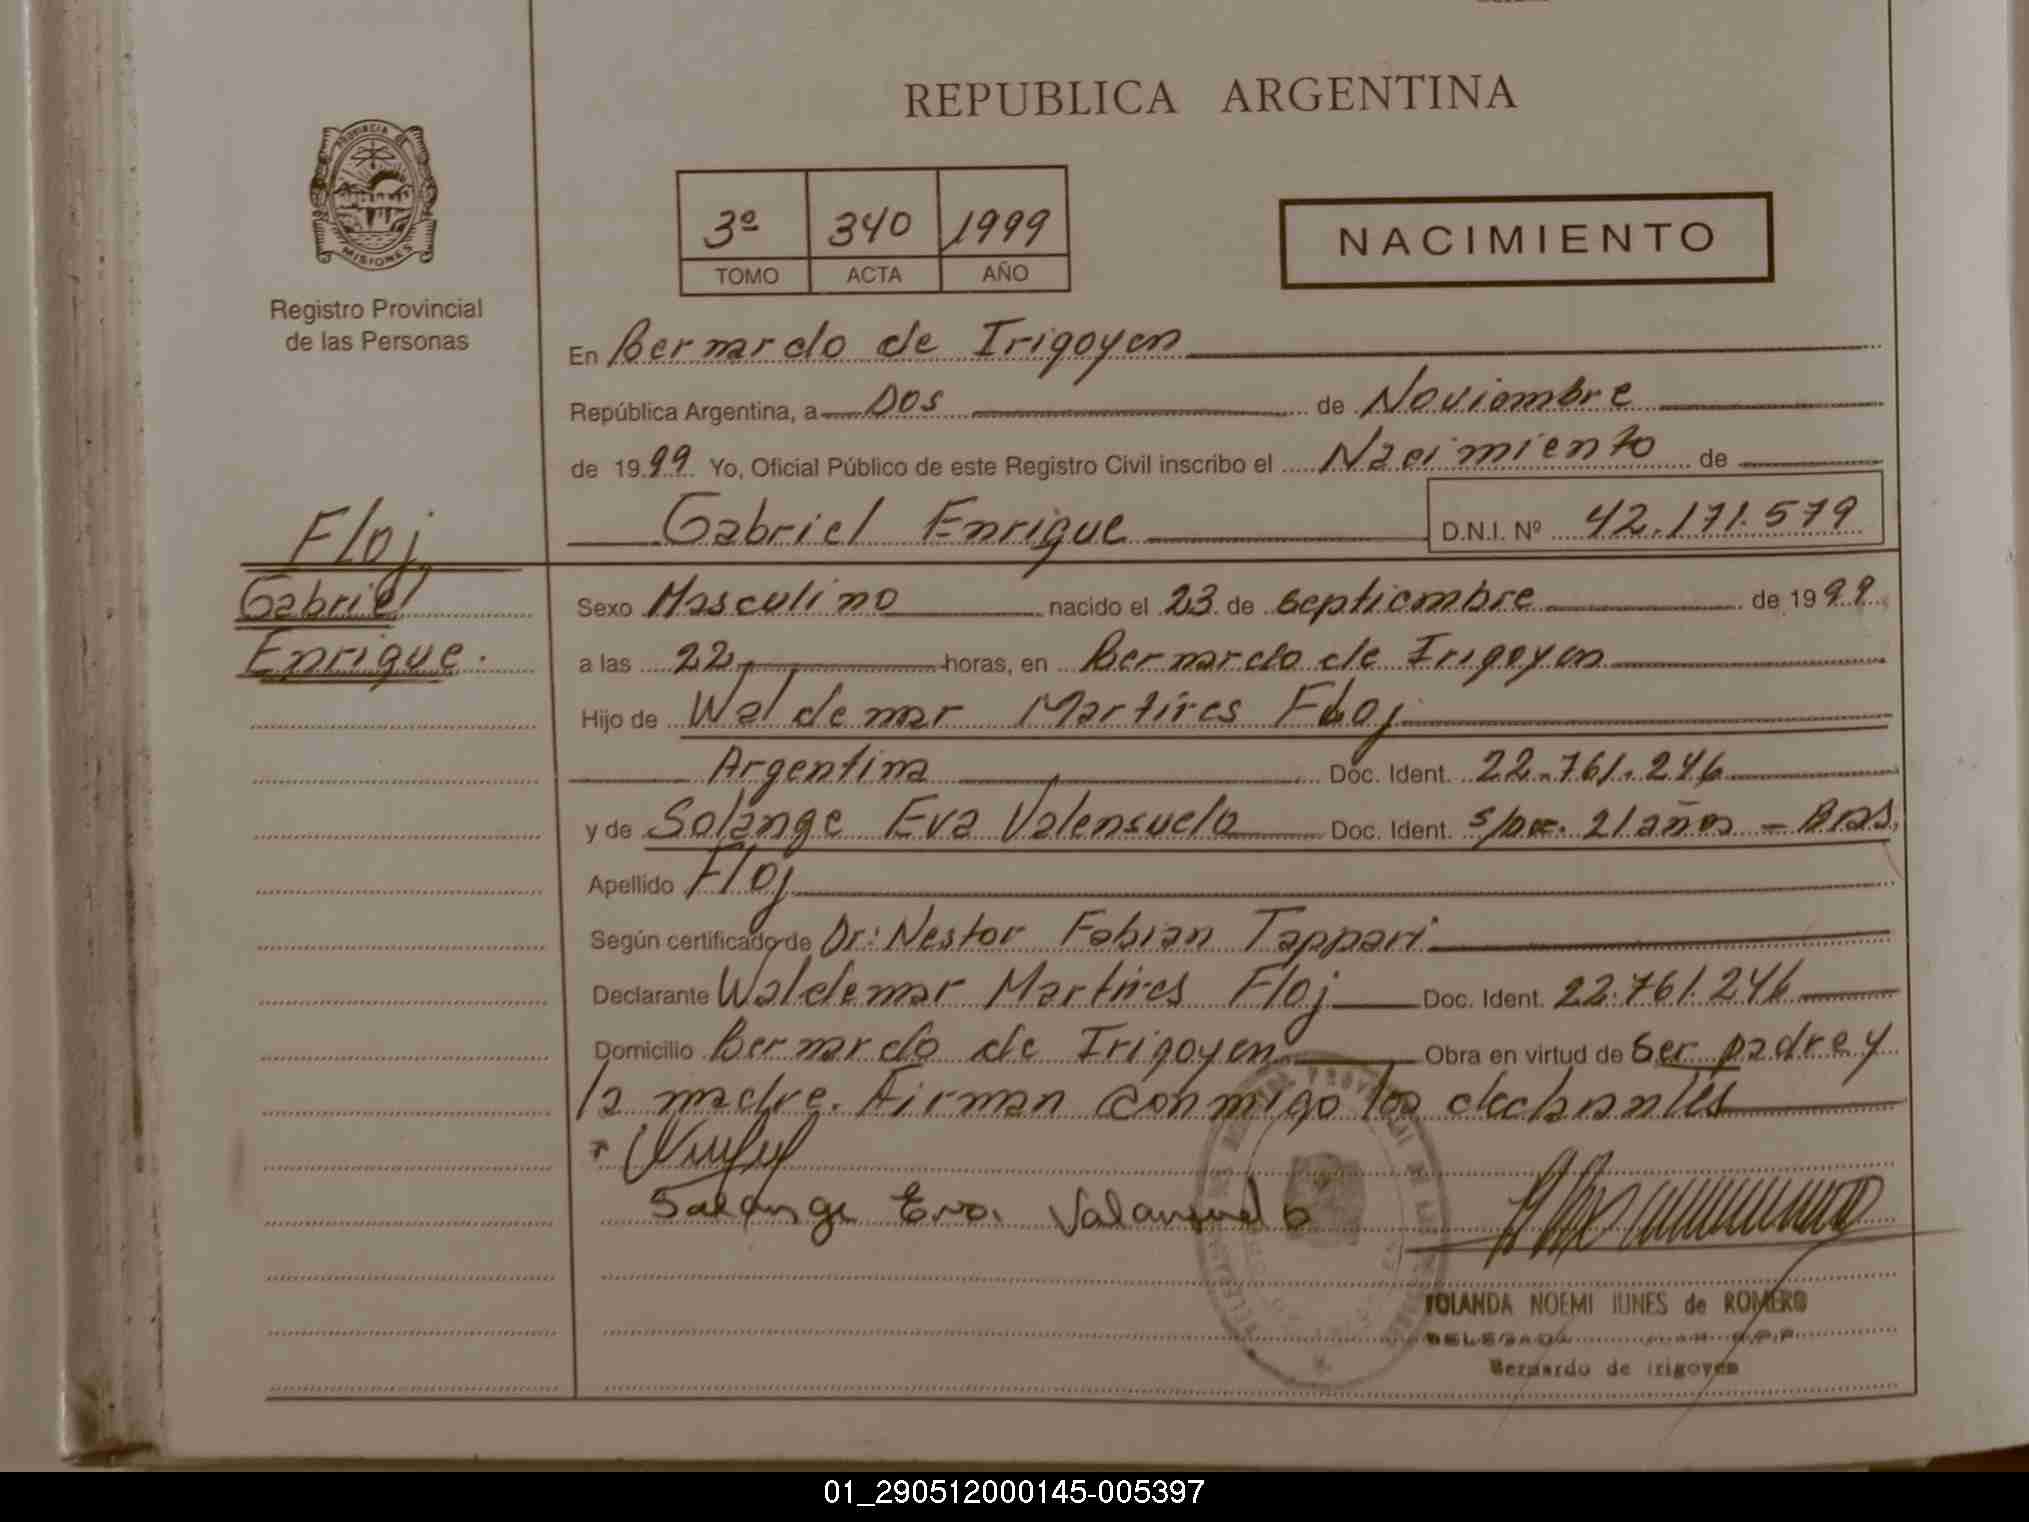 REPUBLICA ARGENTINA
PROVINCIA DE
MISIONES
Registro Provincial
de las Personas
3º 340 1999
TOMO ACTA AÑO
NACIMIENTO
En Bernardo de Irigoyen
República Argentina, a Dos de Noviembre
de 1999 Yo, Oficial Público de este Registro Civil inscribo el Nacimiento de
Gabriel Enrique D.N.I. Nº 42.171.579
Floj
Gabriel
Enrique.
Sexo Masculino nacido el 23 de septiembre de 1999
a las 22 horas, en Bernardo de Irigoyen
Hijo de Waldemar Martires Floj
Argentina Doc. Ident. 22.761.246
y de Solange Eva Valensuela Doc. Ident. s/Doc. 21 años - Bras.
Apellido Floj
Según certificado de Dr: Nestor Fabian Tappari
Declarante Waldemar Martires Floj Doc. Ident. 22.761.246
Domicilio Bernardo de Irigoyen Obra en virtud de ser padre y
la madre. Firman conmigo los declarantes
Solange Eva. Valansuela
YOLANDA NOEMI IUNES de ROMERO
DELEGADA R.P.P.
Bernardo de Irigoyen
01_290512000145-005397